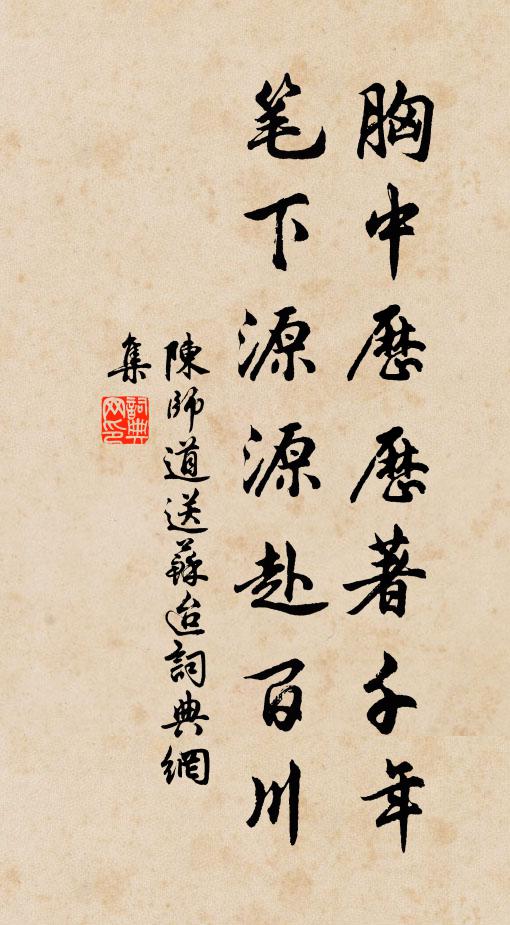 胸中歷歷著千年
笔下源源赴百川
陳師道送蘇迨詞典網
集
詞典网印